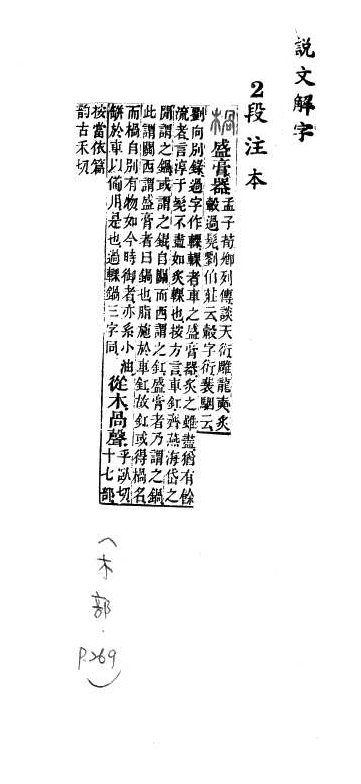 說文解字
2段注本
楇盛膏器
孟子荀卿列傳談天衍雕龍奭炙
轂過髡劉伯莊云轂字衍裴駰云
劉向別錄過字作輠輠者車之盛膏器炙之雖盡猶有餘
流者言淳于髡不盡如炙輠也按方言車釭齊燕海岱之
閒謂之鍋或謂之錕自關而西謂之釭盛膏者乃謂之鍋
此謂關西謂盛膏者曰鍋也脂施於車釭故釭或得楇名
而楇自別有物如今時御者亦系小油
缾於車以僃用是也過輠鍋三字同
從木咼聲
乎臥切
十七部
按當依篇
韵古禾切
(木部.P.269)